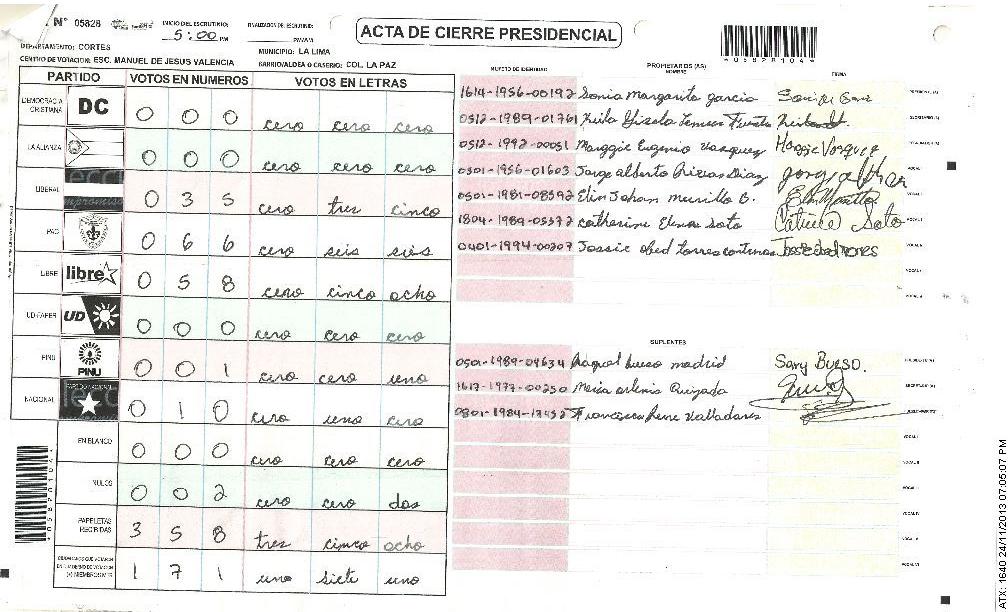 N° 05828
INICIO DEL ESCRUTINIO:
5:00 PM
FINALIZACION DEL ESCRUTINIO:
PM/AM
ACTA DE CIERRE PRESIDENCIAL
*05828104*
DEPARTAMENTO: CORTES
MUNICIPIO: LA LIMA
CENTRO DE VOTACION: ESC. MANUEL DE JESUS VALENCIA
BARRIO/ALDEA O CASERIO: COL. LA PAZ
PARTIDO VOTOS EN NUMEROS VOTOS EN LETRAS
DEMOCRACIA CRISTIANA DC 0 0 0 cero cero cero
LA ALIANZA 0 0 0 cero cero cero
LIBERAL 0 3 5 cero tres cinco
PAC 0 6 6 cero seis seis
LIBRE libre 0 5 8 cero cinco ocho
UD/FAPER UD 0 0 0 cero cero cero
PINU PINU 0 0 1 cero cero uno
NACIONAL 0 1 0 cero uno cero
EN BLANCO 0 0 0 cero cero cero
NULOS 0 0 2 cero cero dos
PAPELETAS RECIBIDAS 3 5 8 tres cinco ocho
CIUDADANOS QUE VOTARON EN CUADERNO DE VOTACION (+) MIEMBROS MER 1 7 1 uno siete uno
NUMERO DE IDENTIDAD
PROPIETARIOS (AS)
NOMBRE
FIRMA
1614-1956-00192 Sonia Margarita garcia
0512-1989-01761
0512-1992-00051 Maggie Eugenio Vasquez Maggie Vasquez
0301-1956-01603 Jorge Alberto Diaz
0501-1981-08592 Elin Johan murillo B.
1804-1989-05372 Catherine Elena Soto Soto
0401-1994-00207 Jossie obed torres
SUPLENTES
0501-1989-09634 Raquel bueso madrid Sary Bueso.
1617-1977-00250 Maria Artemia Quezada
0801-1984-13452 Francisca Irene Valladares
*05828104*
ATX: 1640 24/11/2013 07:05:07 PM